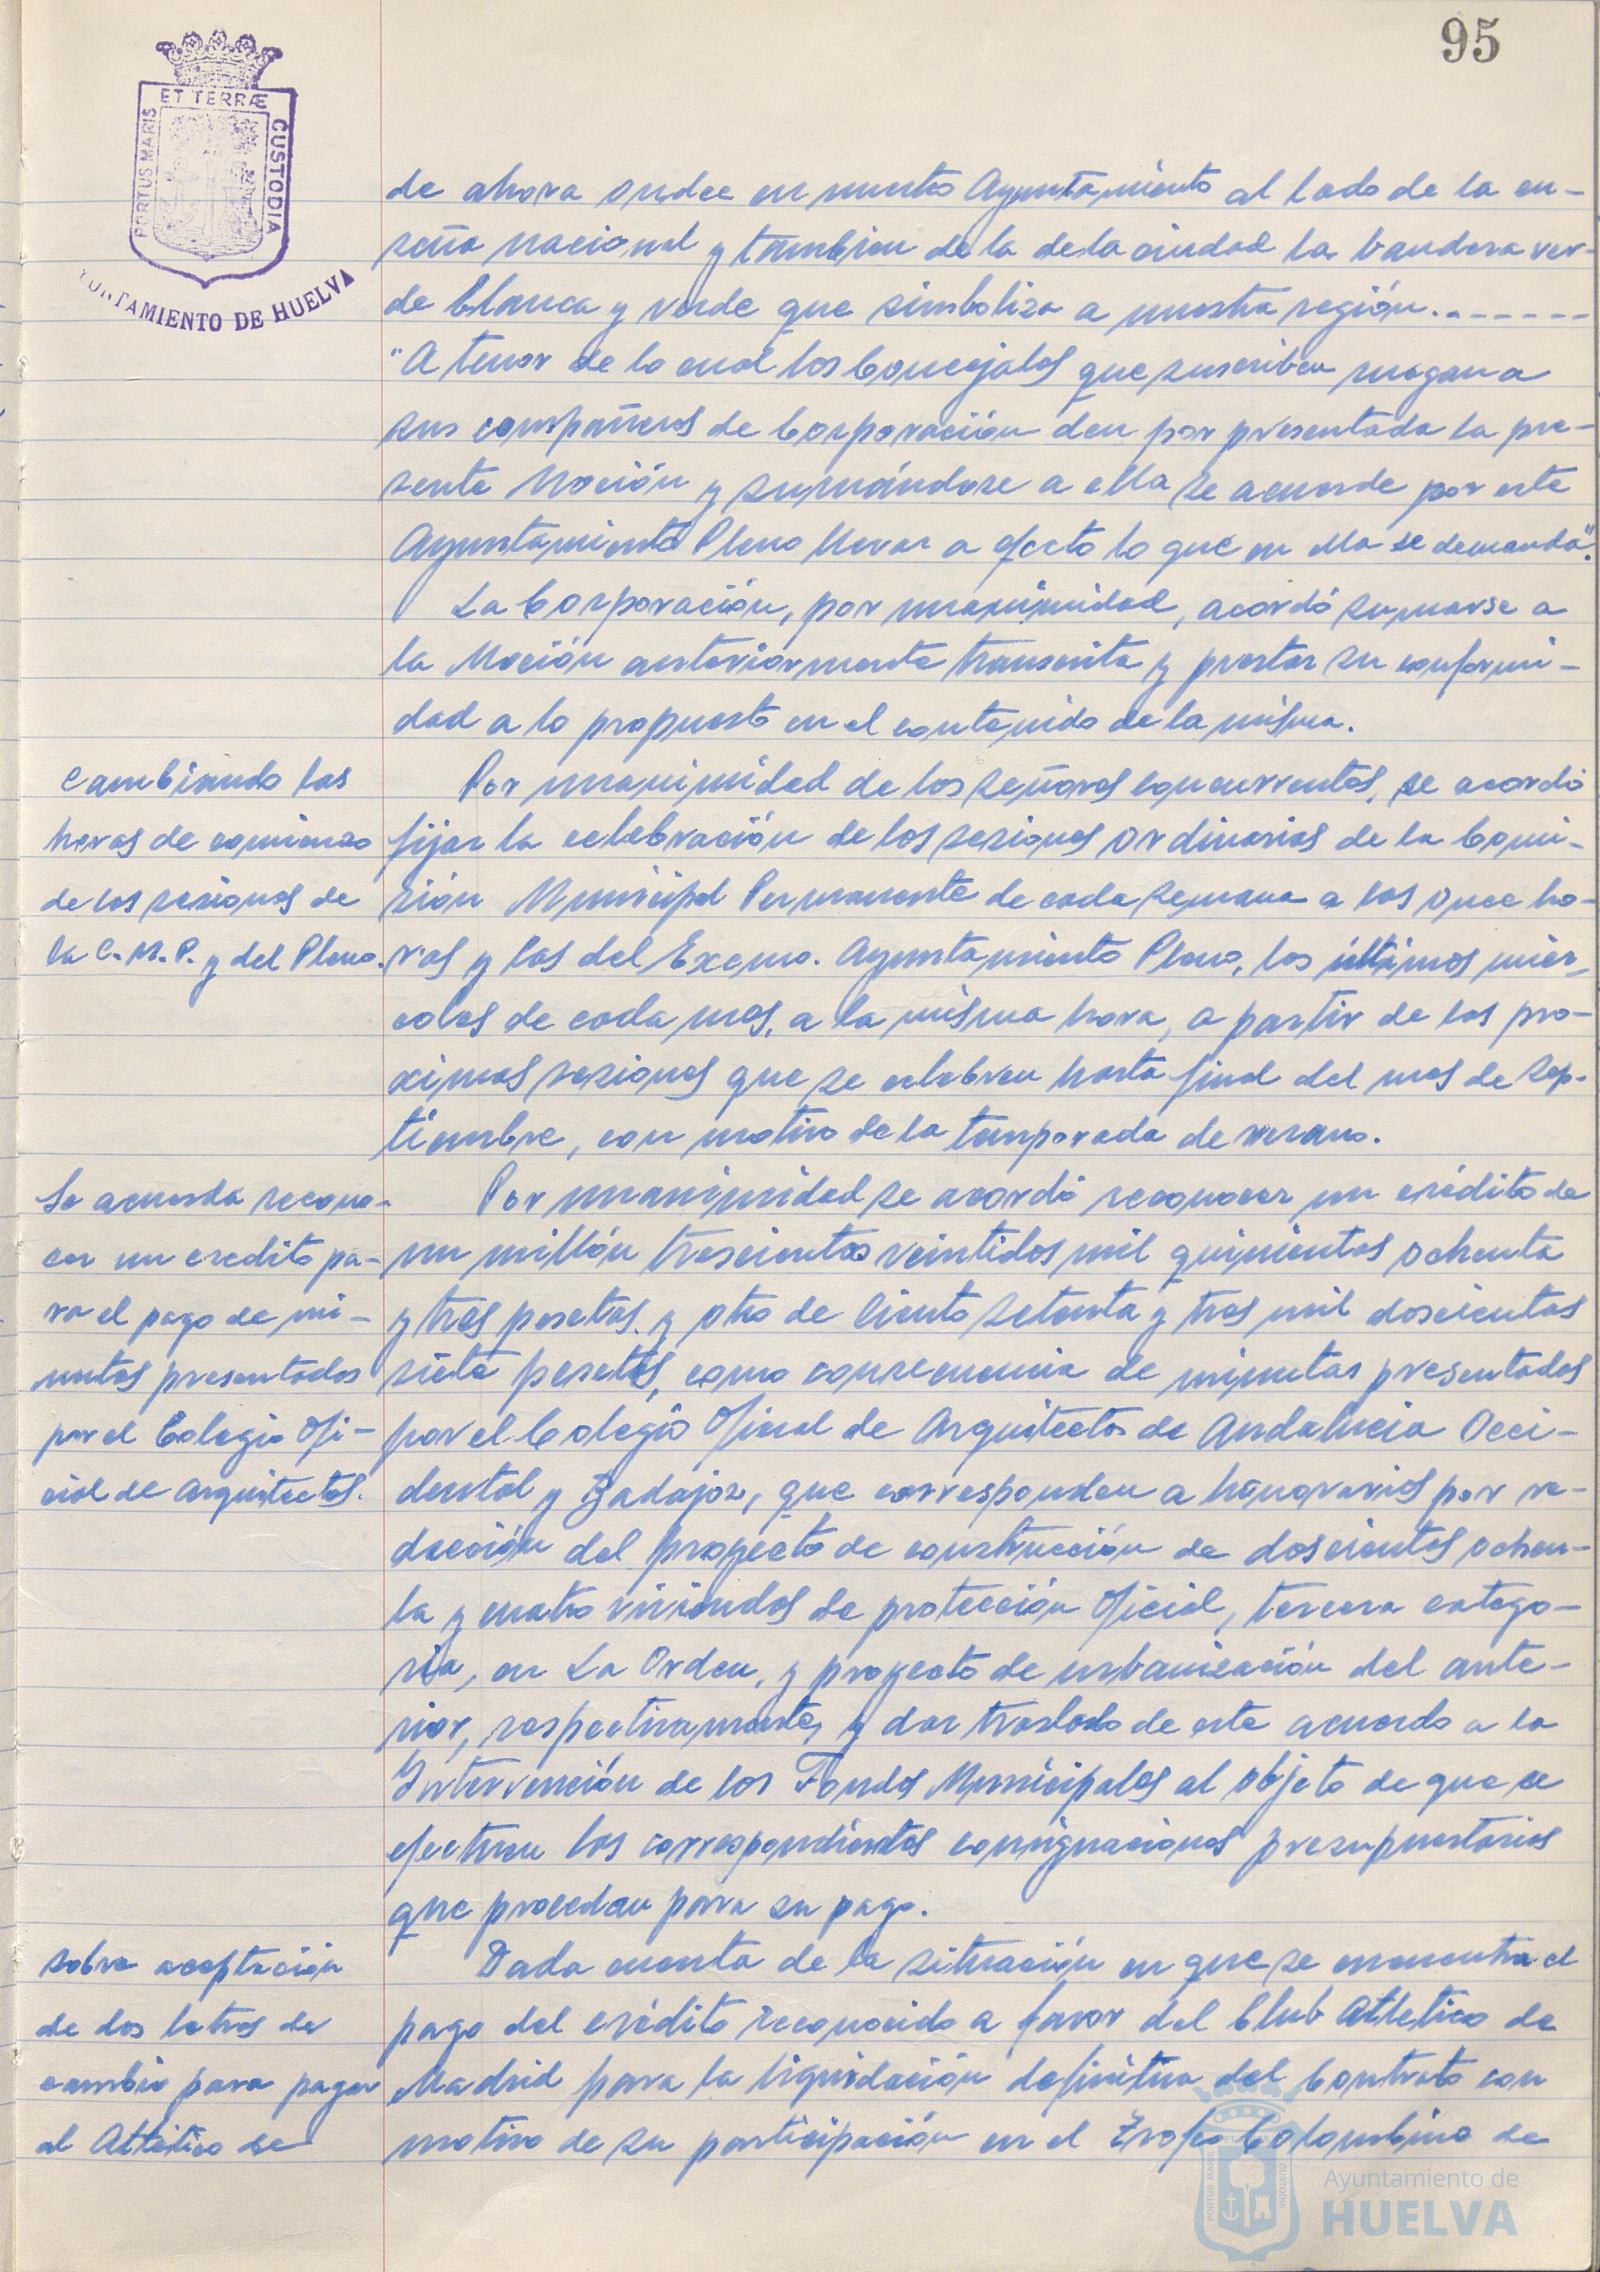 95
ET TERRÆ
PORTUS MARIS
CUSTODIA
AYUNTAMIENTO DE HUELVA
de ahora ondee en nuestro Ayuntamiento al lado de la en-
seña nacional y tambien de la de la ciudad la bandera ver-
de blanca y verde que simboliza a nuestra región.-------
"A tenor de lo cual los Concejales que suscriben ruegan a
sus compañeros de Corporación den por presentada la pre-
sente Moción y sumándose a ella se acuerde por este
Ayuntamiento Pleno llevar a efecto lo que en ella se demanda".
La Corporación, por unanimidad, acordó sumarse a
la Moción anteriormente transcrita y prestar su conformi-
dad a lo propuesto en el contenido de la misma.
Cambiando las
horas de comienzo
de las sesiones de
la C.M.P. y del Pleno.
Por unanimidad de los señores concurrentes, se acordó
fijar la celebración de las sesiones ordinarias de la Comi-
sión Municipal Permanente de cada semana a las once ho-
ras y las del Excmo. Ayuntamiento Pleno, los últimos miér-
coles de cada mes, a la misma hora, a partir de las pró-
ximas sesiones que se celebren hasta final del mes de Sep-
tiembre, con motivo de la temporada de verano.
Se acuerda recono-
cer un credito pa-
ra el pago de mi-
nutas presentadas
por el Colegio Ofi-
cial de Arquitectos.
Por unanimidad se acordó reconocer un crédito de
un millón trescientas veintidos mil quinientas ochenta
y tres pesetas y otro de Ciento setenta y tres mil doscientas
siete pesetas, como consecuencia de minutas presentadas
por el Colegio Oficial de Arquitectos de Andalucia Occi-
dental y Badajoz, que corresponden a honorarios por re-
dacción del proyecto de construcción de doscientas ochen-
ta y cuatro viviendas de protección Oficial, tercera catego-
ria, en La Orden, y proyecto de urbanización del ante-
rior, respectivamente, y dar traslado de este acuerdo a la
Intervención de los Fondos Municipales al objeto de que se
efectuen las correspondientes consignaciones presupuestarias
que procedan para su pago.
Sobre aceptación
de dos letras de
cambio para pagar
al Atlético de
Dada cuenta de la situación en que se encuentra el
pago del crédito reconocido a favor del Club Atletico de
Madrid para la liquidación definitiva del Contrato con
motivo de su participación en el Trofeo Colombino de
Ayuntamiento de
HUELVA